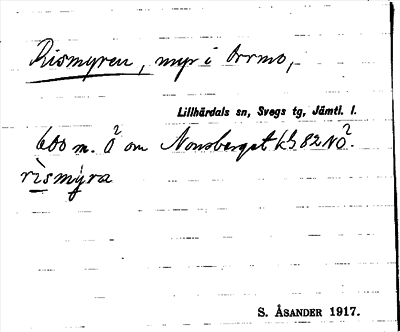 Rismyren, myr i Orrmo,
Lillhärdals sn, Svegs tg, Jämtl. l.
600 m. O̊ om Nonsberget k bl 82 NO̊.
rismyra
S. ÅSANDER 1917.